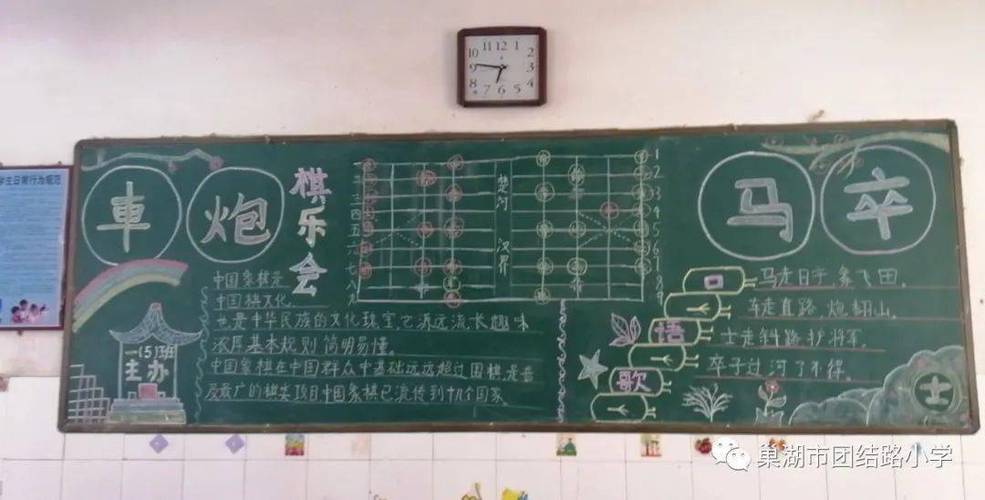 10 11 12 1
2
9
3
8
4
7 6 5
学生日常行为规范
車
炮
棋乐会
楚河
汉界
1
2
3
4
5
6
7
8
9
三
四
五
六
七
八
九
马
卒
中国象棋是
中国棋文化
也是中华民族的文化瑰宝,它源远流长,趣味
浓厚基本规则简明易懂。
中国象棋在中国群众中基础远远超过围棋,是普
及最广的棋类项目中国象棋已流传到十几个国家。
一(5)班
主办
悟
歌
马走日字 象飞田,
车走直路 炮翻山,
士走斜路护将军,
卒子过河了不得。
士
巢湖市团结路小学